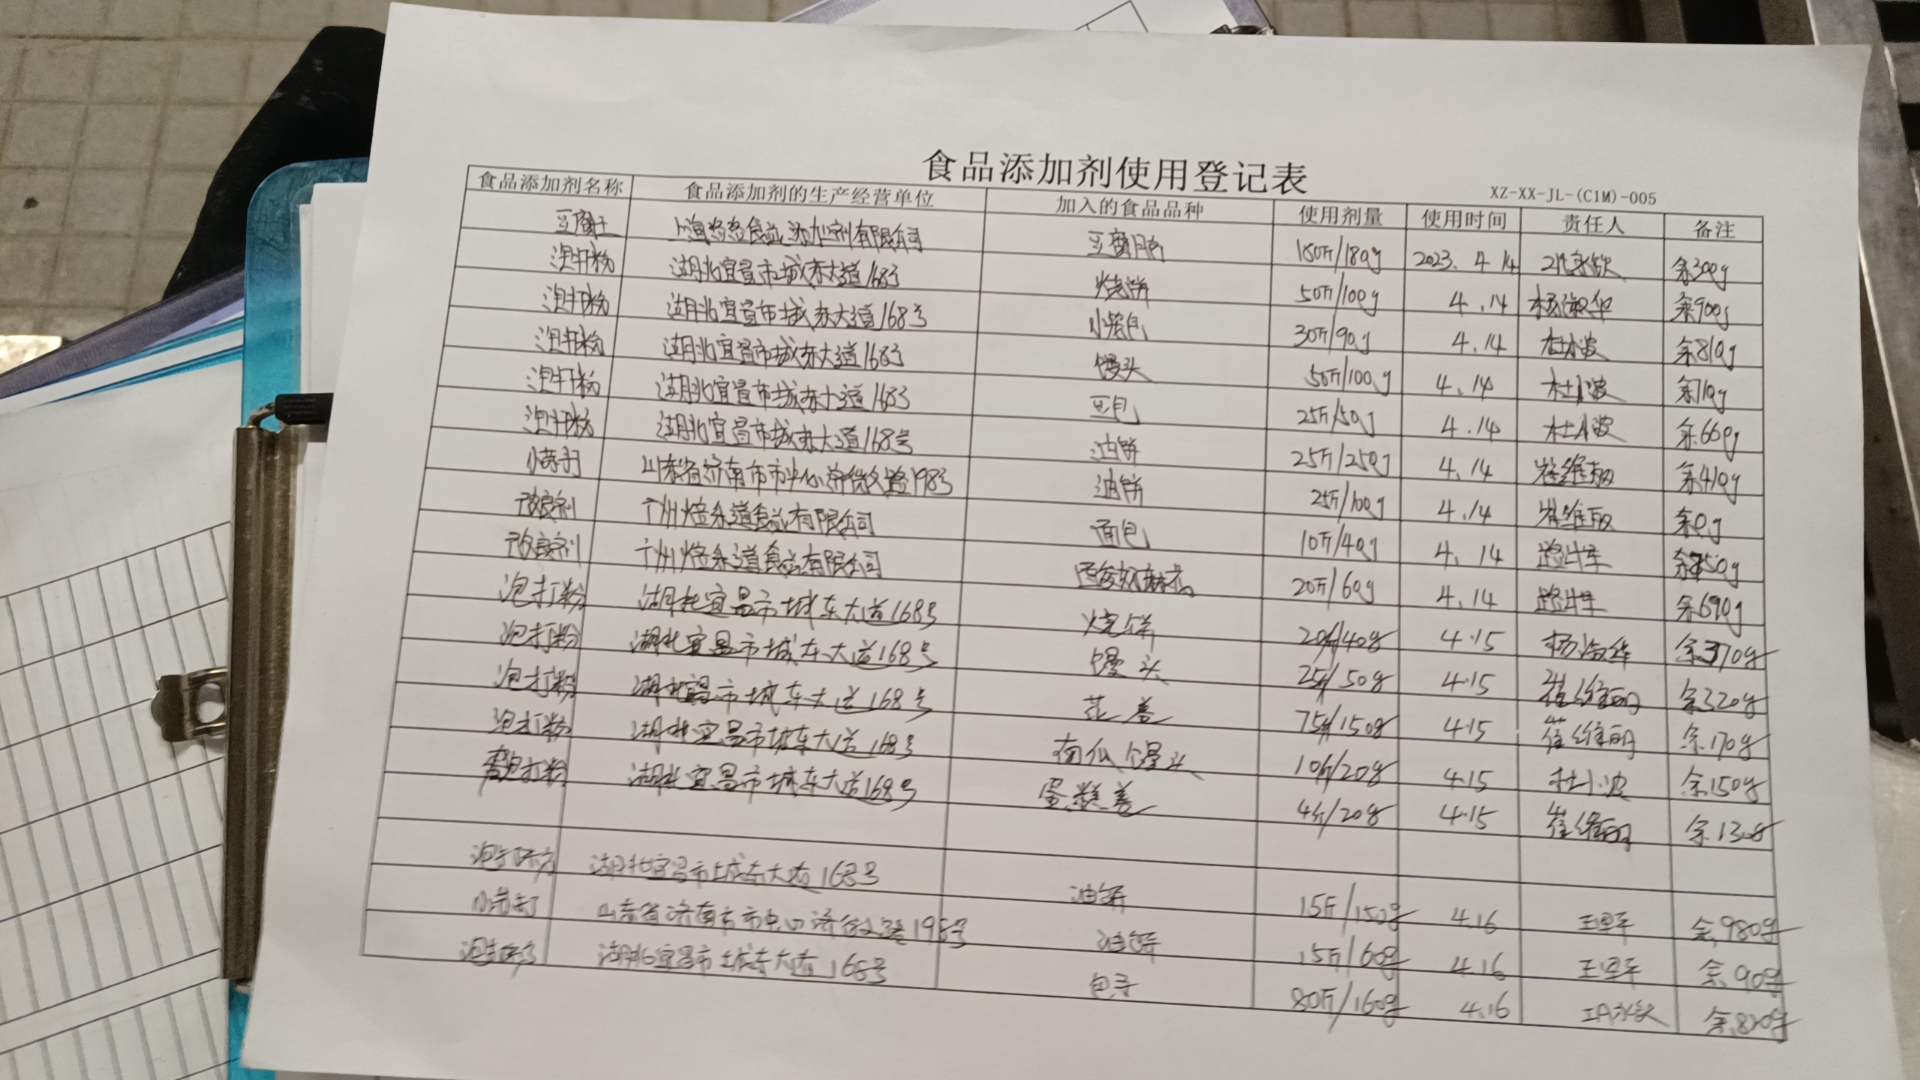 食品添加剂使用登记表
XZ-XX-JL-(CIM)-005
食品添加剂名称 食品添加剂的生产经营单位 加入的食品品种 使用剂量 使用时间 责任人 备注
豆腐王 食品添加剂有限公司 豆腐脑 180斤/180g 2023. 4 14 余300g
泡打粉 湖北宜昌市城东大道168号 烧饼 50斤/100g 4.14 杨淑华 余900g
泡打粉 湖北宜昌市城东大道168号 小笼包 30斤/90g 4.14 杜小波 余810g
泡打粉 湖北宜昌市城东大道168号 馒头 50斤/100g 4.14 杜小波 余710g
泡打粉 湖北宜昌市城东大道168号 豆包 25斤/50g 4.14 杜小波 余660g
泡打粉 湖北宜昌市城东大道168号 油饼 25斤/250g 4.14 崔维丽 余410g
小苏打 山东省济南市市中心济微路198号 油饼 25斤/100g 4.14 崔维丽 余0g
改良剂 广州焙乐道食品有限公司 面包 10斤/40g 4.14 余750g
改良剂 广州焙乐道食品有限公司 20斤/60g 4.14 余690g
泡打粉 湖北宜昌市城东大道168号 烧饼 20斤/40g 4.15 杨淑华 余370g
泡打粉 湖北宜昌市城东大道168号 馒头 25斤/50g 4.15 崔维丽 余320g
泡打粉 湖北宜昌市城东大道168号 花卷 75斤/150g 4.15 崔维丽 余170g
泡打粉 湖北宜昌市城东大道168号 南瓜馒头 10斤/20g 4.15 杜小波 余150g
泡打粉 湖北宜昌市城东大道168号 蛋糕卷 4斤/20g 4.15 崔维丽 余130g
泡打粉 湖北宜昌市城东大道168号 油饼 15斤/150g 4.16 余980g
小苏打 山东省济南市市中心济微路198号 油饼 15斤/60g 4.16 余90g
泡打粉 湖北宜昌市城东大道168号 包子 80斤/160g 4.16 余820g